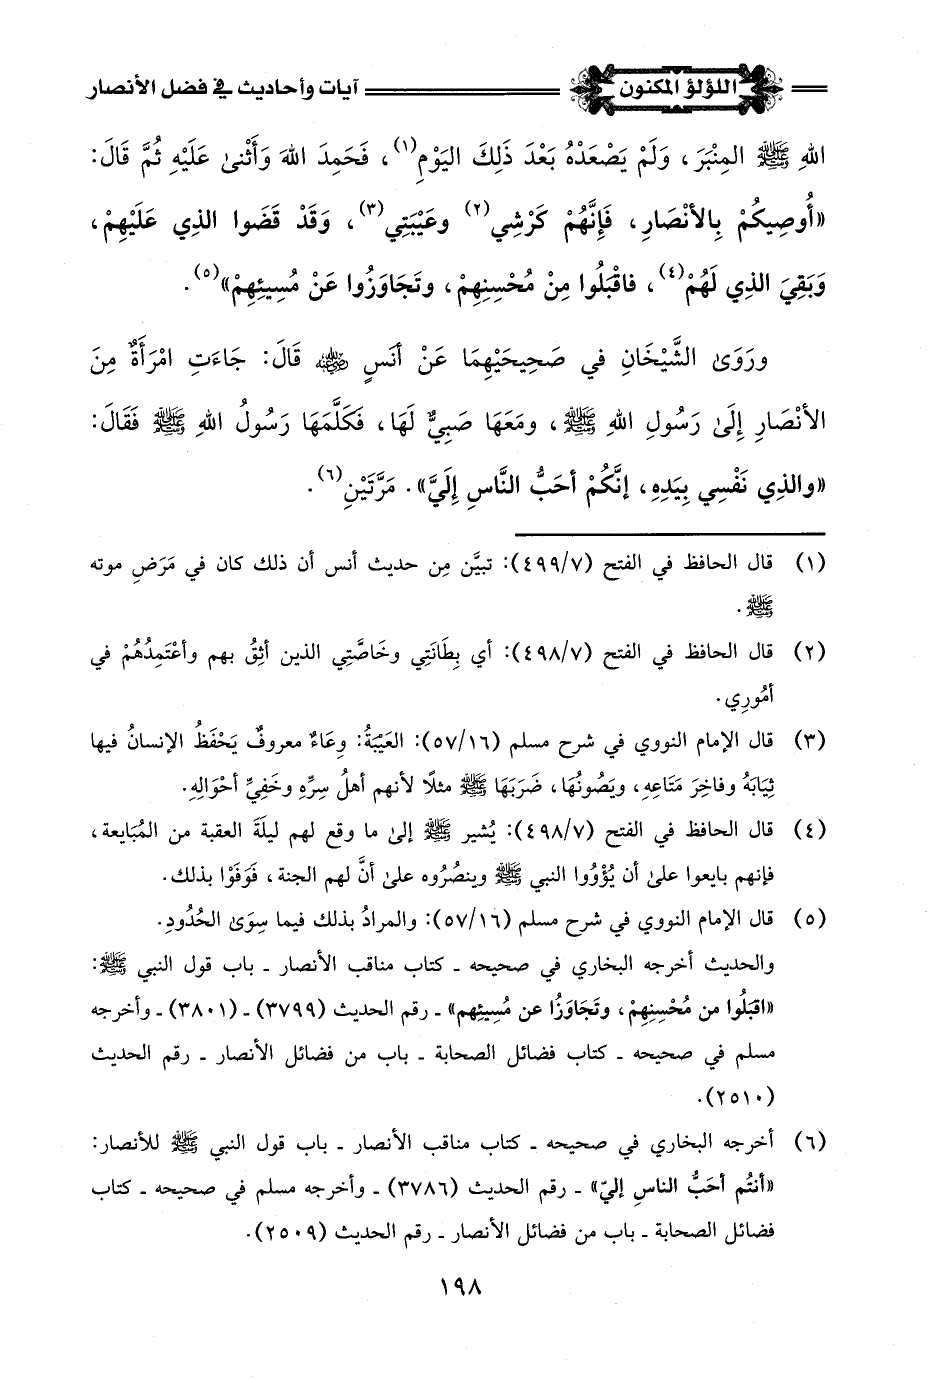 اللؤلؤ المكنون
آيات وأحاديث في فضل الأنصار
اللهِ ﷺ المِنْبَرَ، وَلَمْ يَصْعَدْهُ بَعْدَ ذَلِكَ اليَوْمِ(١)، فَحَمِدَ اللهَ وَأَثْنىٰ عَلَيْهِ ثُمَّ قَالَ:
«أُوصِيكُمْ بِالأنْصَارِ، فَإِنَّهُمْ كَرْشِي(٢) وعَيْبَتِي(٣)، وَقَدْ قَضَوا الذِي عَلَيْهِمْ،
وَبَقِيَ الذِي لَهُمْ(٤)، فاقْبَلُوا مِنْ مُحْسِنِهِمْ، وتَجَاوَزُوا عَنْ مُسِيئِهِمْ»(٥).
ورَوَىٰ الشَّيْخَانِ في صَحِيحَيْهِمَا عَنْ أنَسٍ رضي الله عنه قَالَ: جَاءَتِ امْرَأَةٌ مِنَ
الأنْصَارِ إِلَىٰ رَسُولِ اللهِ ﷺ، ومَعَهَا صَبِيٌّ لَهَا، فَكَلَّمَهَا رَسُولُ اللهِ ﷺ فَقَالَ:
«والذِي نَفْسِي بِيَدِهِ، إنَّكُمْ أحَبُّ النَّاسِ إلَيَّ». مَرَّتَيْنِ(٦).
(١) قال الحافظ في الفتح (٤٩٩/٧): تبيَّن مِن حديث أنس أن ذلك كان في مَرَضِ موته
ﷺ.
(٢) قال الحافظ في الفتح (٤٩٨/٧): أي بِطَانَتِي وخَاصَّتِي الذين أثِقُ بهم وأعْتَمِدُهُمْ في
أمُورِي.
(٣) قال الإمام النووي في شرح مسلم (٥٧/١٦): العَيْبَةُ: وِعَاءٌ معروفٌ يَحْفَظُ الإنسانُ فيها
ثِيَابَهُ وفاخِرَ مَتَاعِهِ، ويَصُونُهَا، ضَرَبَهَا ﷺ مثلًا لأنهم أهلُ سِرِّه وخَفِيِّ أحْوَالِهِ.
(٤) قال الحافظ في الفتح (٤٩٨/٧): يُشير ﷺ إلىٰ ما وقع لهم ليلَةَ العقبة من المُبَايعة،
فإنهم بايعوا علىٰ أن يُؤْوُوا النبي ﷺ وينصُرُوه علىٰ أنَّ لهم الجنة، فَوَفَوْا بذلك.
(٥) قال الإمام النووي في شرح مسلم (٥٧/١٦): والمرادُ بذلك فيما سِوَىٰ الحُدُودِ.
والحديث أخرجه البخاري في صحيحه ـ كتاب مناقب الأنصار ـ باب قول النبي ﷺ:
«اقبَلُوا من مُحْسِنِهِمْ، وتَجَاوَزُا عن مُسِيئِهم» ـ رقم الحديث (٣٧٩٩) ـ (٣٨٠١) ـ وأخرجه
مسلم في صحيحه ـ كتاب فضائل الصحابة ـ باب من فضائل الأنصار ـ رقم الحديث
(٢٥١٠).
(٦) أخرجه البخاري في صحيحه ـ كتاب مناقب الأنصار ـ باب قول النبي ﷺ للأنصار:
«أنتُم أحَبُّ الناس إليّ» ـ رقم الحديث (٣٧٨٦) ـ وأخرجه مسلم في صحيحه ـ كتاب
فضائل الصحابة ـ باب من فضائل الأنصار ـ رقم الحديث (٢٥٠٩).
١٩٨